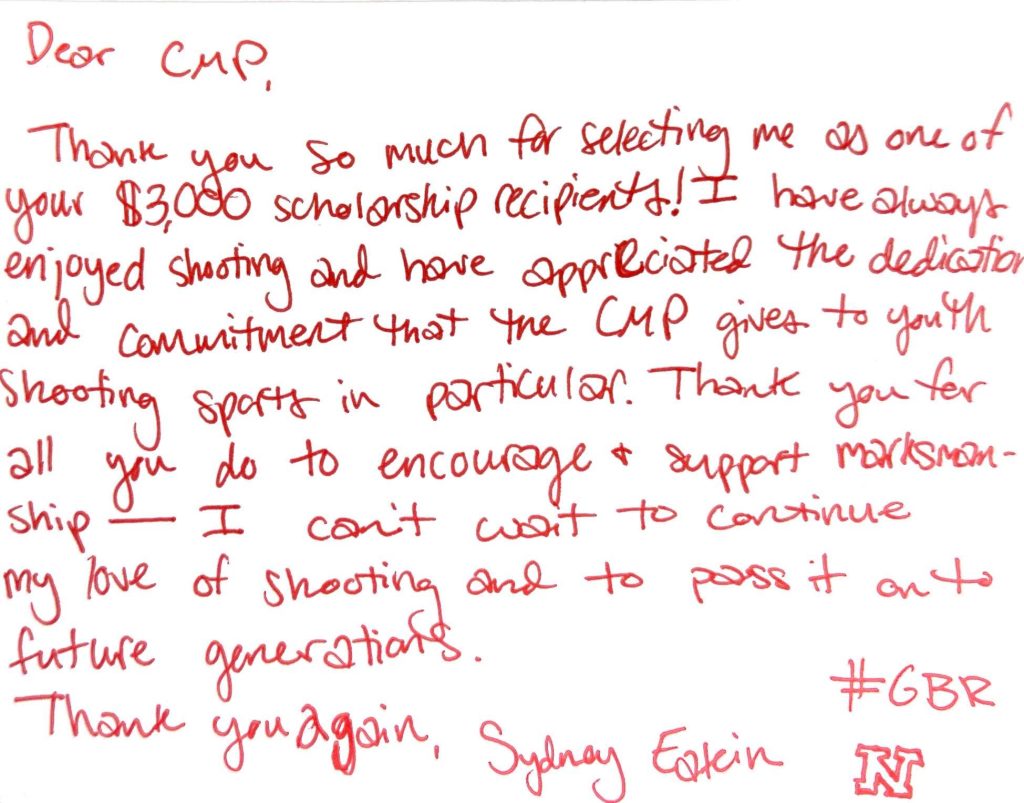 Dear CMP,
Thank you so much for selecting me as one of
your $3,000 scholarship recipients! I have always
enjoyed shooting and have appreciated the dedication
and commitment that the CMP gives to youth
shooting sports in particular. Thank you for
all you do to encourage & support marksman-
ship — I can't wait to continue
my love of shooting and to pass it on to
future generations.
Thank you again, Sydney Eakin
#GBR
N